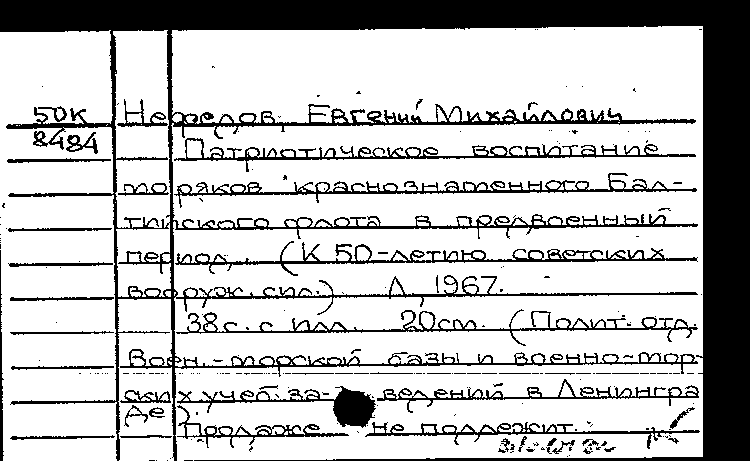 50К Нефедов, Евгений Михайлович
8484 Патриотическое воспитание
моряков краснознаменного Бал-
тийского флота в предвоенный
период. (К 50-летию советских
вооруж. сил.) Л., 1967.
38с. с илл. 20см. (Полит. отд.
Воен.-морской базы и военно-мор-
ских учеб. за- ведений в Ленингра
де).
Продаже не подлежит.